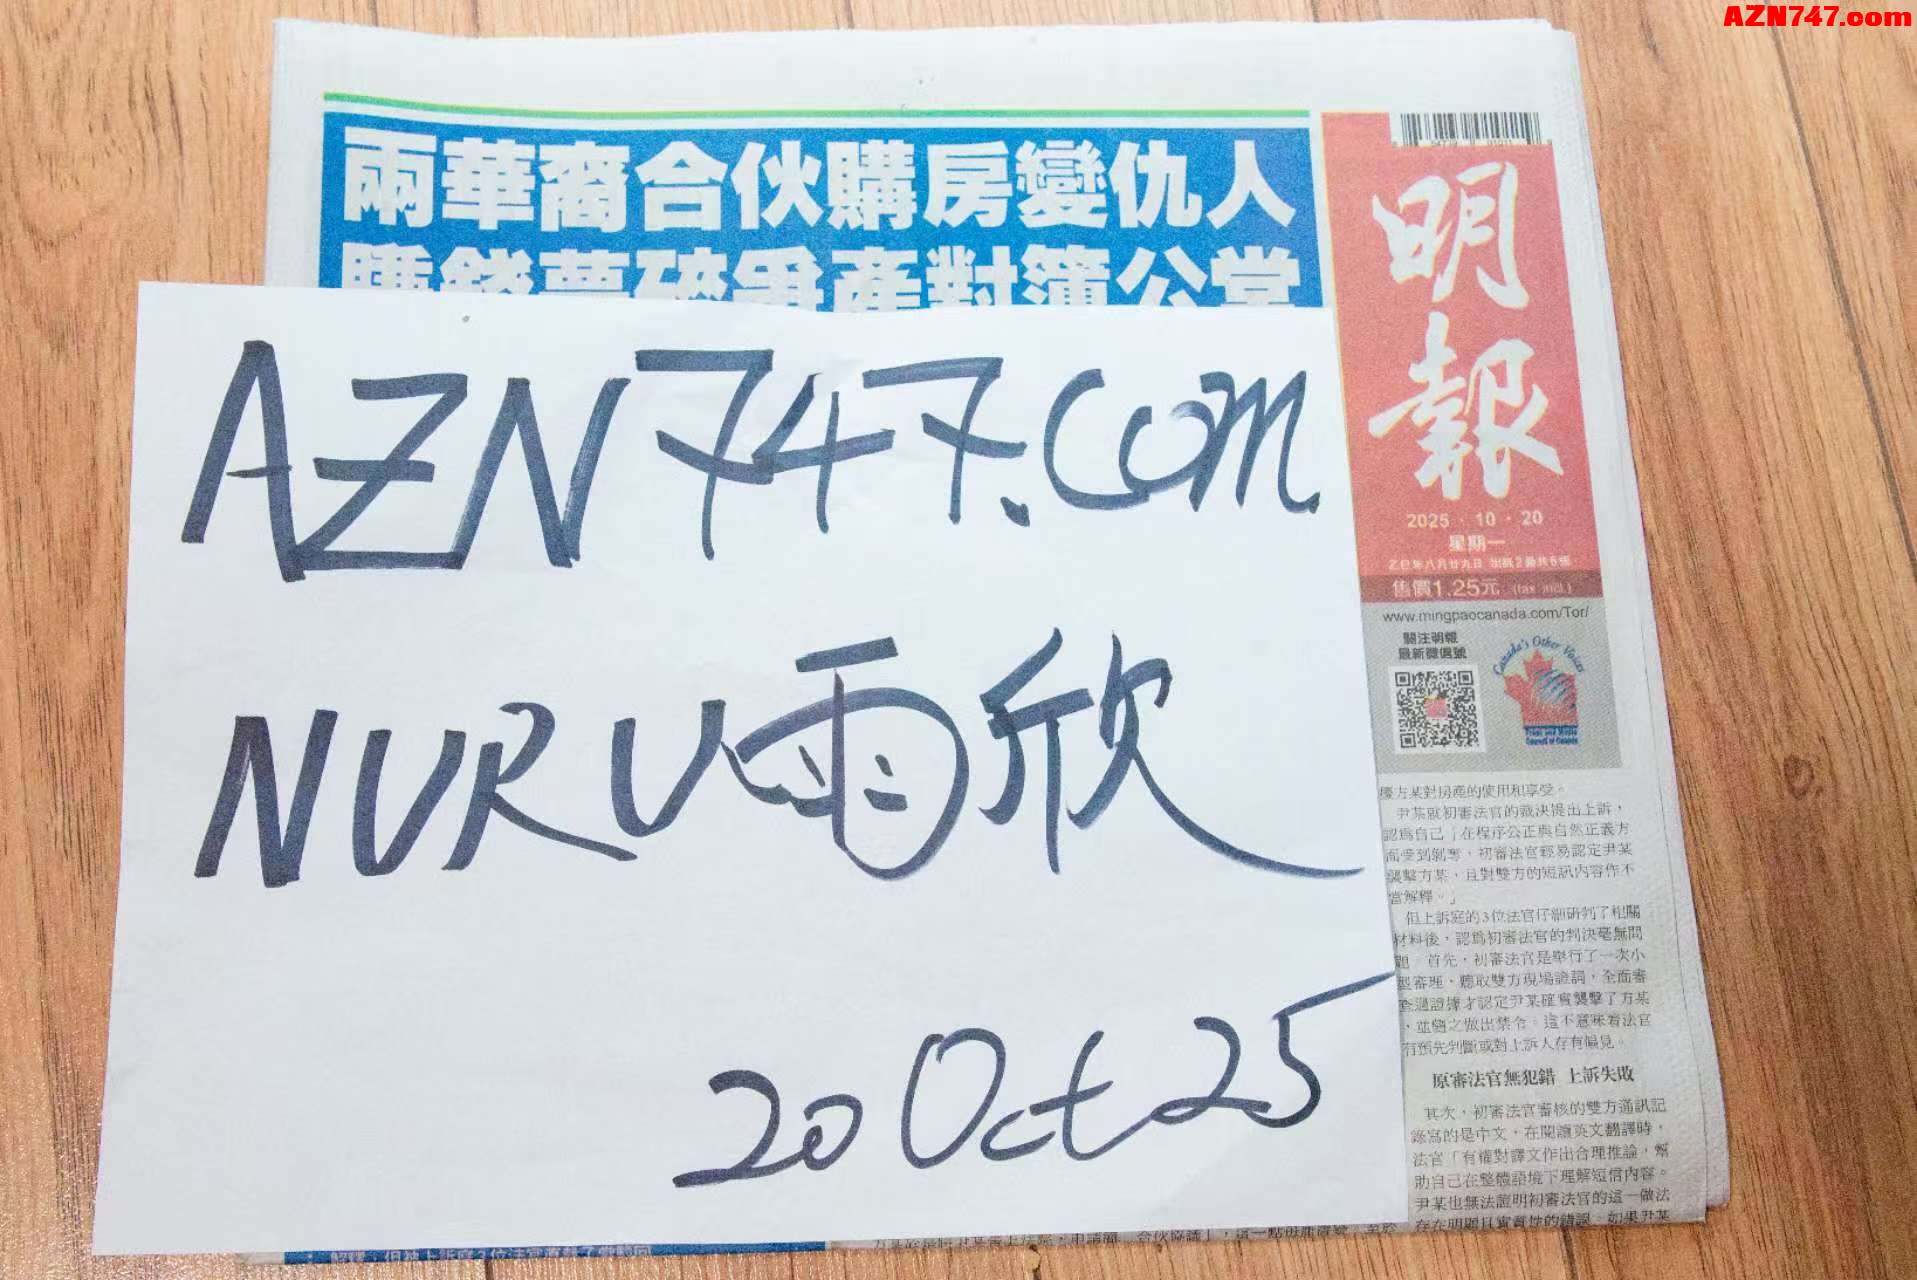 AZN747.com
兩華裔合伙購房變仇人
賺錢夢碎爭產對簿公堂
明報
2025 · 10 · 20
星期一
乙巳年八月廿九日
售價1.25元 (tax incl.)
www.mingpaocanada.com/Tor/
關注明報
最新微信號
Canada's Other Voices
AZN747.com
NURU雨欣
20 Oct 25
方某對房產的使用和享受。
尹某就初審法官的裁決提出上訴，
認為自己「在程序公正與自然正義方
面受到剝奪，初審法官輕易認定尹某
襲擊方某，且對雙方的短訊內容作不
當解釋。」
但上訴庭的3位法官仔細研判了相關
材料後，認為初審法官的判決毫無問
題。首先，初審法官是舉行了一次小
型審理，聽取雙方現場證詞，全面審
查過證據才認定尹某確實襲擊了方某
，並隨之做出禁令。這不意味着法官
有預先判斷或對上訴人存有偏見。
原審法官無犯錯 上訴失敗
其次，初審法官審核的雙方通訊記
錄寫的是中文，在閱讀英文翻譯時，
法官「有權對譯文作出合理推論，幫
助自己在整體語境下理解短信內容。
尹某也無法證明初審法官的這一做法
存在明顯且實質性的錯誤。如果尹某